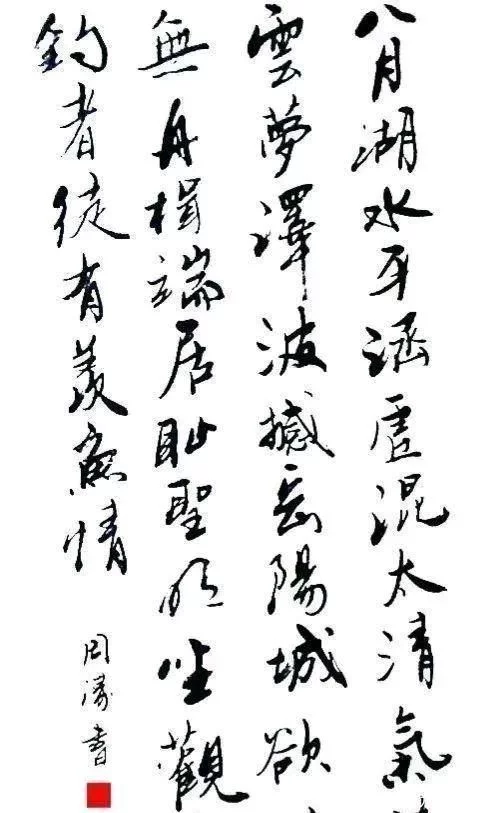 八月湖水平涵虛混太清氣
雲夢澤波撼岳陽城欲
無舟楫端居耻聖明坐觀
釣者徒有羨魚情
周濤書